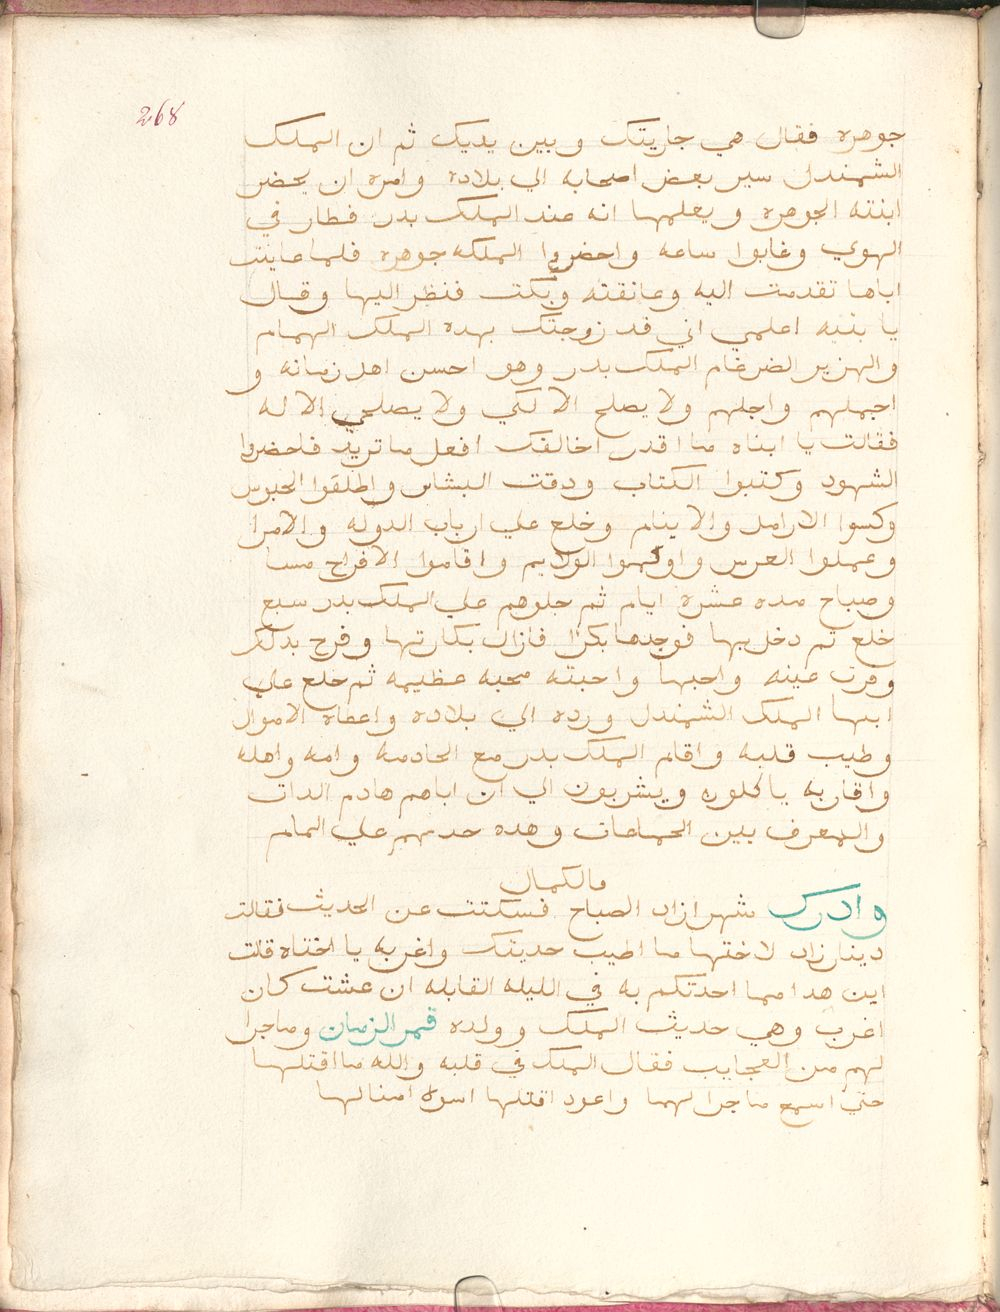 268
جوهره فقال هي جاريتك وبين يديك ثم ان الملك
الشمندل سير بعض اصحابه الي بلاده وامره ان يحضر
ابنته الجوهره ويعلمها انه عند الملك بدر فطار في
الهوي وغابوا ساعه واحضروا الملكه جوهره فلما عاينت
اباها تقدمت اليه وعانقته وبكت فنظر اليها وقال
يا بنيه اعلمي اني قد زوجتك بهده الملك الهمام
والهزبر الضرغام الملك بدر وهو احسن اهل زمانه و
اجملهم واجلهم ولا يصلح الا لكي ولا يصلحي الا له
فقالت يا ابتاه ما اقدر اخالفك افعل ما تريد فاحضروا
الشهود وكتبوا الكتاب ودقت البشاير واطلقوا الحبوس
وكسوا الارامل والايتام وخلع علي ارباب الدوله والامرا
وعملوا العرس واولموا الولايم واقاموا الافراح مسا
وصباح مده عشره ايام ثم جلوهم علي الملك بدر سبع
خلع ثم دخل بها فوجدها بكرا فازال بكارتها وفرح بدلك
وقرت عينه واحبها واحبته محبه عظيمه ثم خلع علي
ابيها الملك الشمندل ورده الي بلاده واعطاه الاموال
وطيب قلبه واقام الملك بدر مع الخادمه وامه واهله
واقاربه ياكلون ويشربون الي ان اتاهم هادم الدات
والمعرف بين الجماعات وهده حديثهم علي التمام
والكمال
وادرك شهرازاد الصباح فسكتت عن الحديث فقالت
دينارزاد لاختها ما اطيب حديتك واغربه يا اختاه قالت
اين هدا مما احدتكم به في الليله القابله ان عشت كان
اغرب وهي حديث الملك وولده قمر الزمان وماجرا
لهم من العجايب فقال الملك في قلبه والله ما اقتلها
حتي اسمع ماجرا لهما واعود اقتلها اسوه امتالها